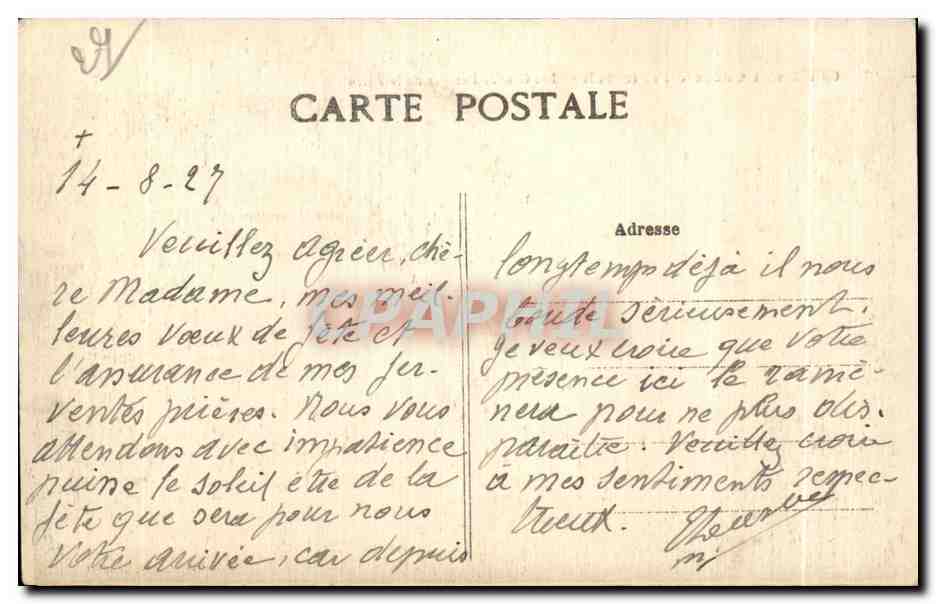 CARTE POSTALE
+
14-8-27
Veuillez agréer, chè-
re Madame, mes meil-
leures vœux de fête et
l'assurance de mes fer-
ventes prières. Nous vous
attendons avec impatience
puisse le soleil être de la
fête que sera pour nous
votre arrivée, car depuis
Adresse
longtemps déjà il nous
boude sérieusement.
Je veux croire que votre
présence ici le ramè-
nera pour ne plus dis-
paraître. Veuillez croire
à mes sentiments respec-
tueux.
CPAPHIL